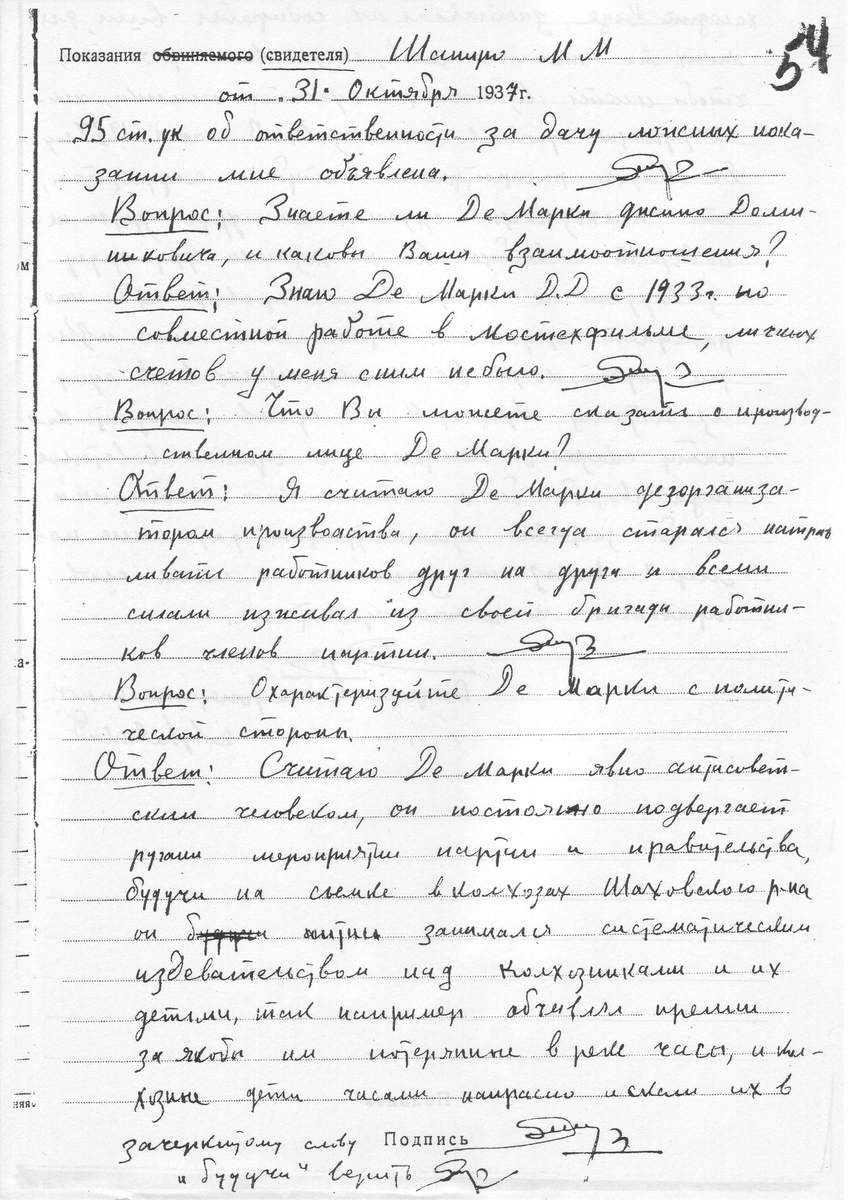 54
Показания обвиняемого (свидетеля) Шапиро М М
от "31" Октября 1937г.
95 ст. ук об ответственности за дачу ложных пока-
заний мне объявлена.
Вопрос: Знаете ли Де Марки Дисино Доми-
никовича, и каковы Ваши взаимоотношения?
Ответ: Знаю Де Марки Д.Д с 1933г. по
совместной работе в Мостехфильме, личных
счетов у меня с ним не было.
Вопрос: Что Вы можете сказать о производ-
ственном лице Де Марки?
Ответ: Я считаю Де Марки дезорганиза-
тором производства, он всегда старался натрав
ливать работников друг на друга и всеми
силами изживал из своей бригады работни-
ков членов партии.
Вопрос: Охарактеризуйте Де Марки с полити-
ческой стороны.
Ответ: Считаю Де Марки явно антисовет-
ским человеком, он постоянно подвергает
ругани мероприятия партии и правительства,
будучи на съемке в колхозах Шаховского р-на
он будучи занимался систематическим
издевательством над колхозниками и их
детьми, так например объявлял премии
за якобы им потерянные в реке часы, и кол-
хозные дети часами напрасно искали их в
зачеркнутому слову Подпись
"будучи" верить